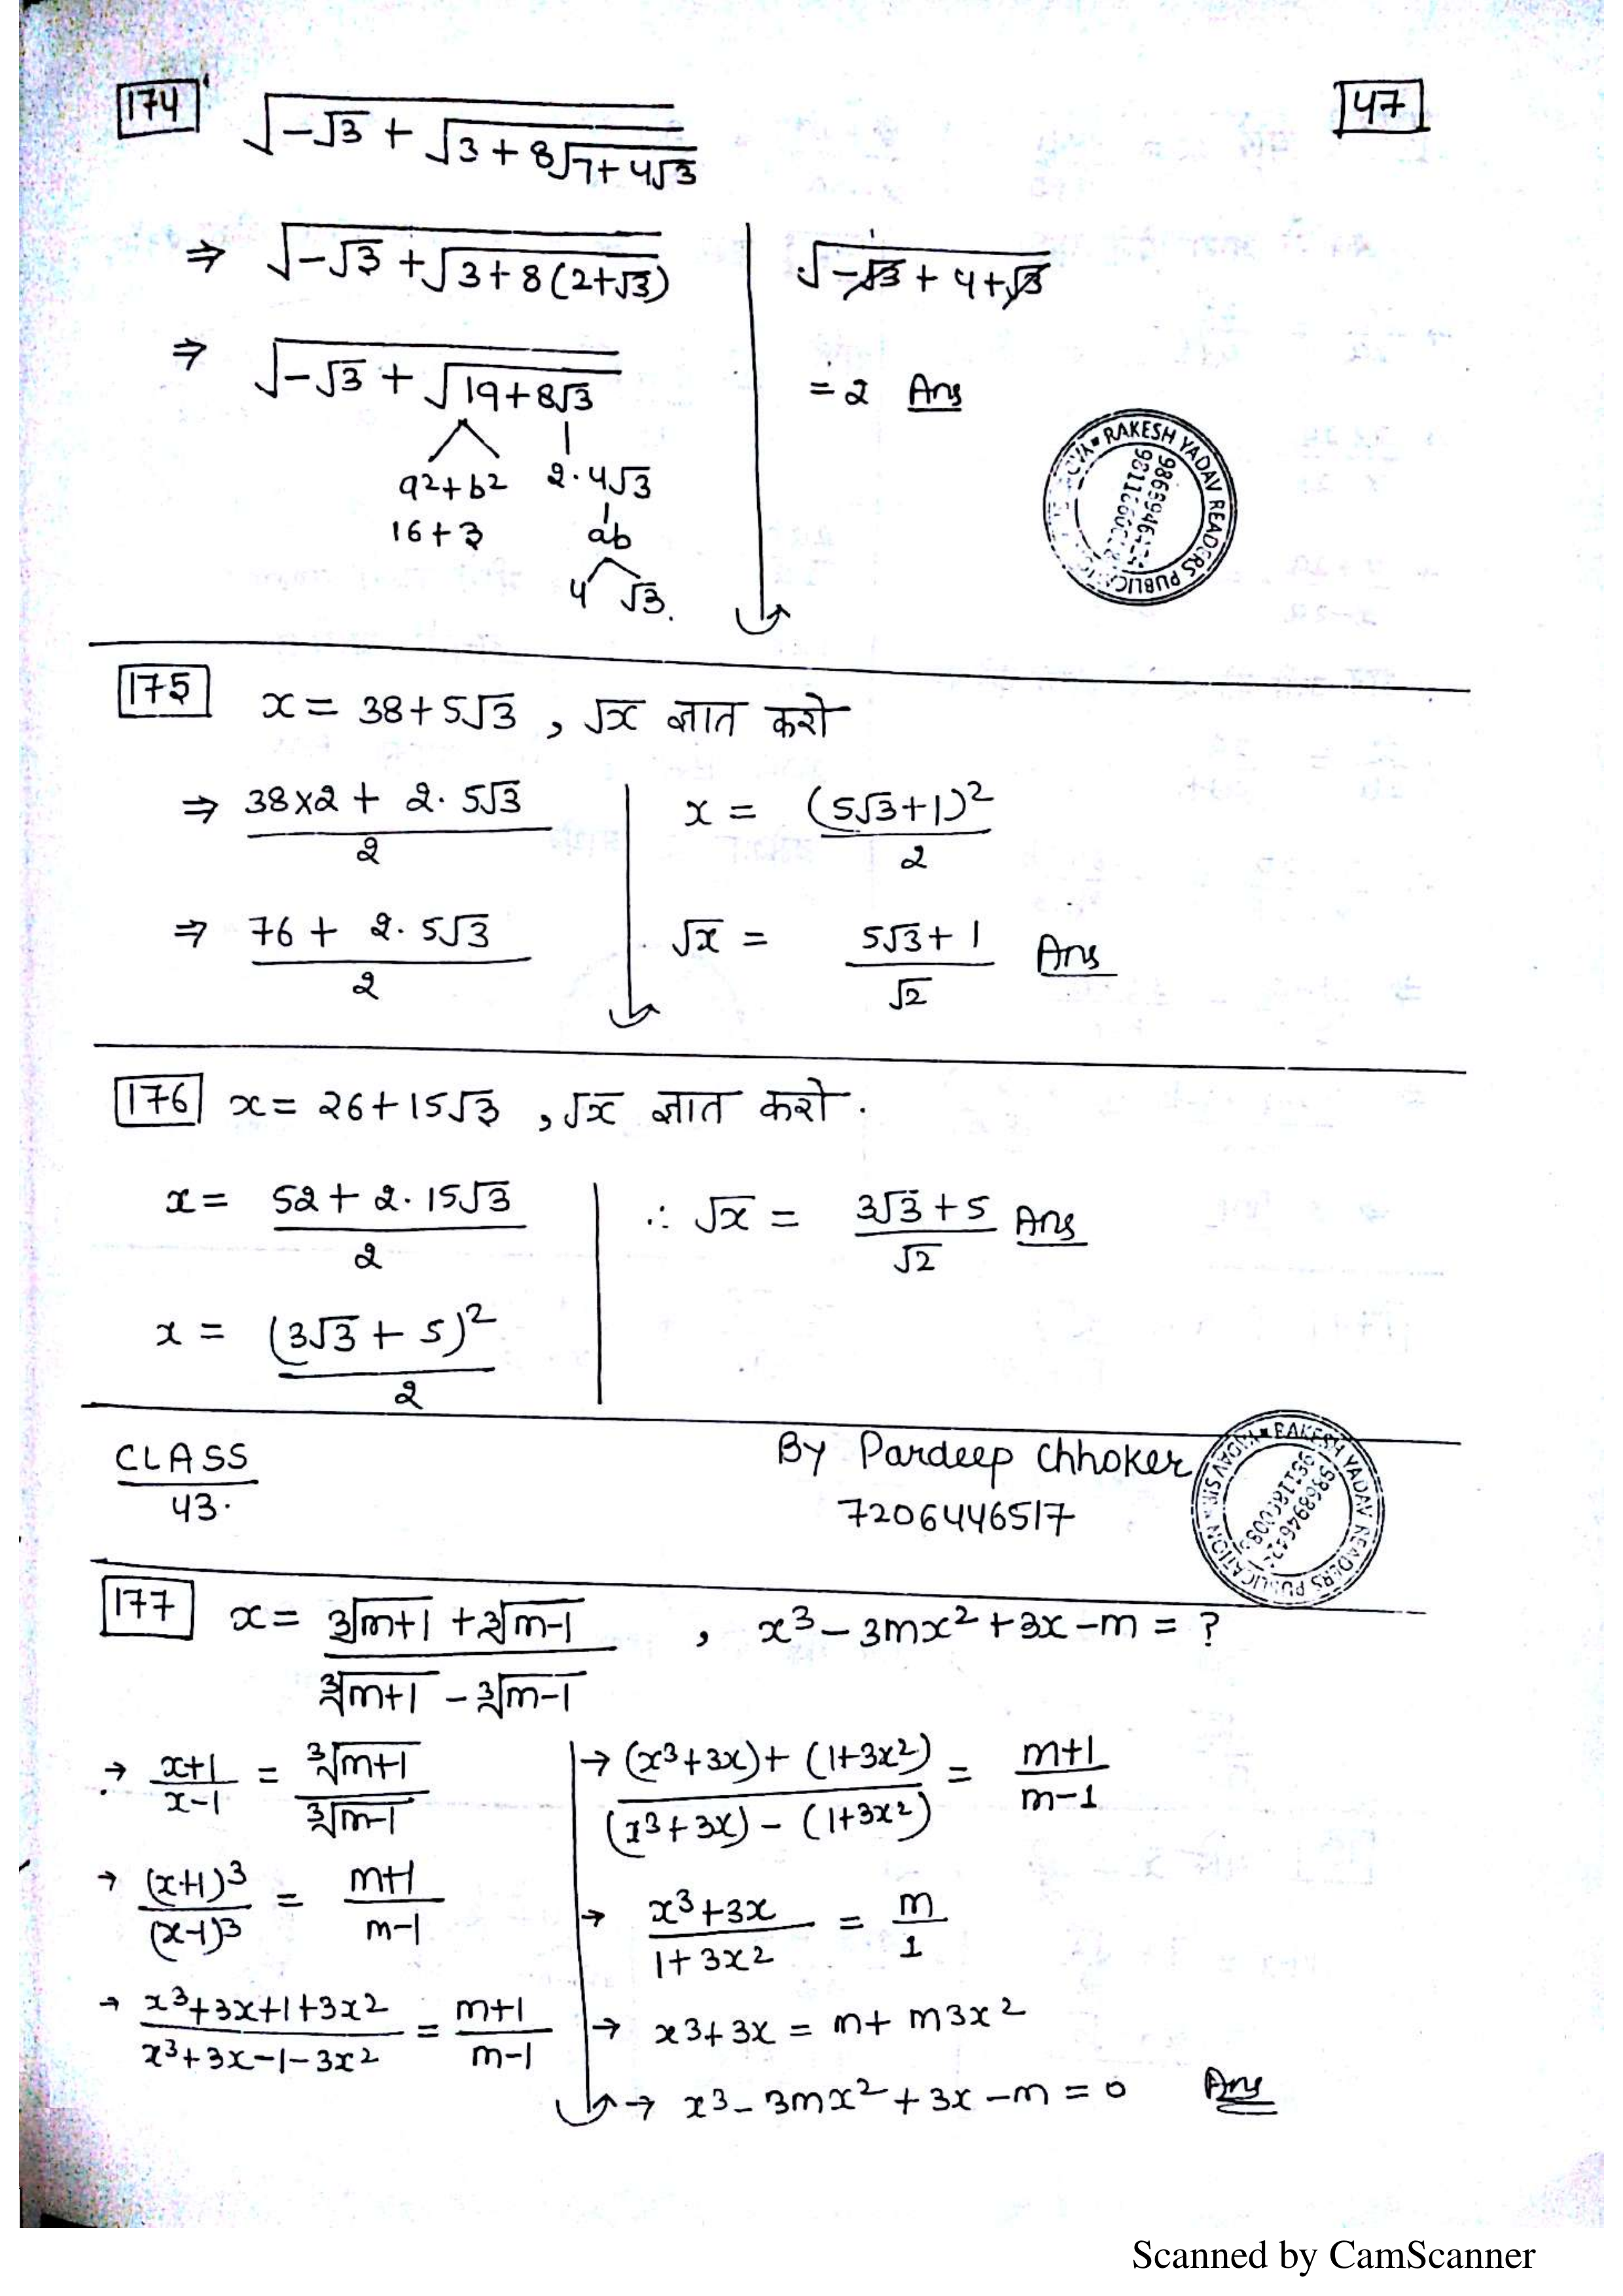 174
47
√(-√3 + √(3 + 8√(7 + 4√3)))
⇒ √(-√3 + √(3 + 8(2+√3)))
⇒ √(-√3 + √(19 + 8√3))
a²+b² 2·4√3
16+3 ab
4 √3.
√(-√3 + 4 + √3)
= 2 Ans
RAKESH YADAV READERS PUBLICATION
175 x = 38+5√3 , √x ज्ञात करो
⇒ (38×2 + 2·5√3)/2
⇒ (76 + 2·5√3)/2
x = (5√3+1)²/2
√x = (5√3+1)/√2 Ans
176 x = 26+15√3 , √x ज्ञात करो.
x = (52 + 2·15√3)/2
x = (3√3 + 5)²/2
∴ √x = (3√3+5)/√2 Ans
CLASS
43.
By Pardeep Chhoker
7206446517
RAKESH YADAV READERS PUBLICATION
177 x = (∛(m+1) + ∛(m-1))/(∛(m+1) - ∛(m-1)) , x³-3mx²+3x-m = ?
→ (x+1)/(x-1) = ∛(m+1)/∛(m-1)
→ (x+1)³/(x-1)³ = (m+1)/(m-1)
→ (x³+3x+1+3x²)/(x³+3x-1-3x²) = (m+1)/(m-1)
→ ((x³+3x)+(1+3x²))/((x³+3x)-(1+3x²)) = (m+1)/(m-1)
→ (x³+3x)/(1+3x²) = m/1
→ x³+3x = m+m3x²
→ x³-3mx²+3x-m = 0 Ans
Scanned by CamScanner